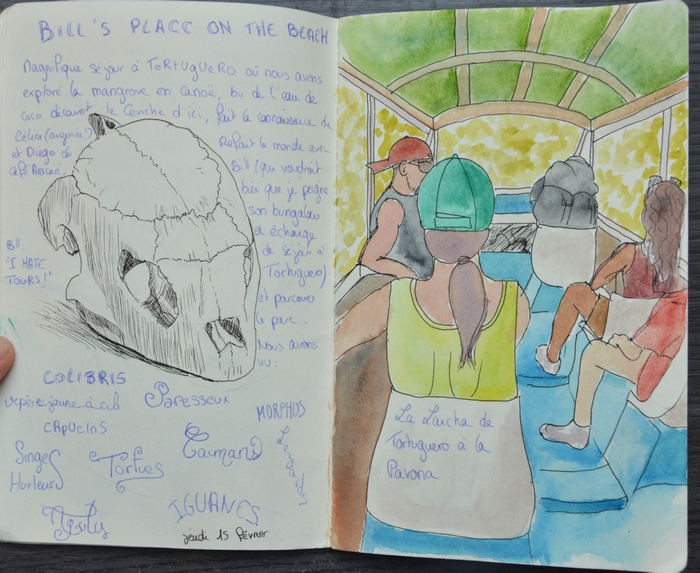 BILL'S PLACE ON THE BEACH
Magnifique séjour à TORTUGUERO où nous avons
exploré la mangrove en canoë, bu de l'eau de
coco, découvert le Ceviche d'ici, fait la connaissance de
Céline (augerine?)
et Diego du
café Rescan.
Refait le monde avec
Bill (qui voudrait
bien que je pagne
son bungalow
en échange
de séjour à
Tortuguero)
et parcouru
le parc...
Nous avons
vu:
Bill:
"I HATE
TOURS!"
COLIBRIS
vipère jaune à cils
Paresseux
MORPHOS
CAPUCINS
Caimans
Lézards
Singes
Hurleurs
Tortues
IGUANES
jeudi 15 février
La Lancha de
Tortuguero à la
Pavona